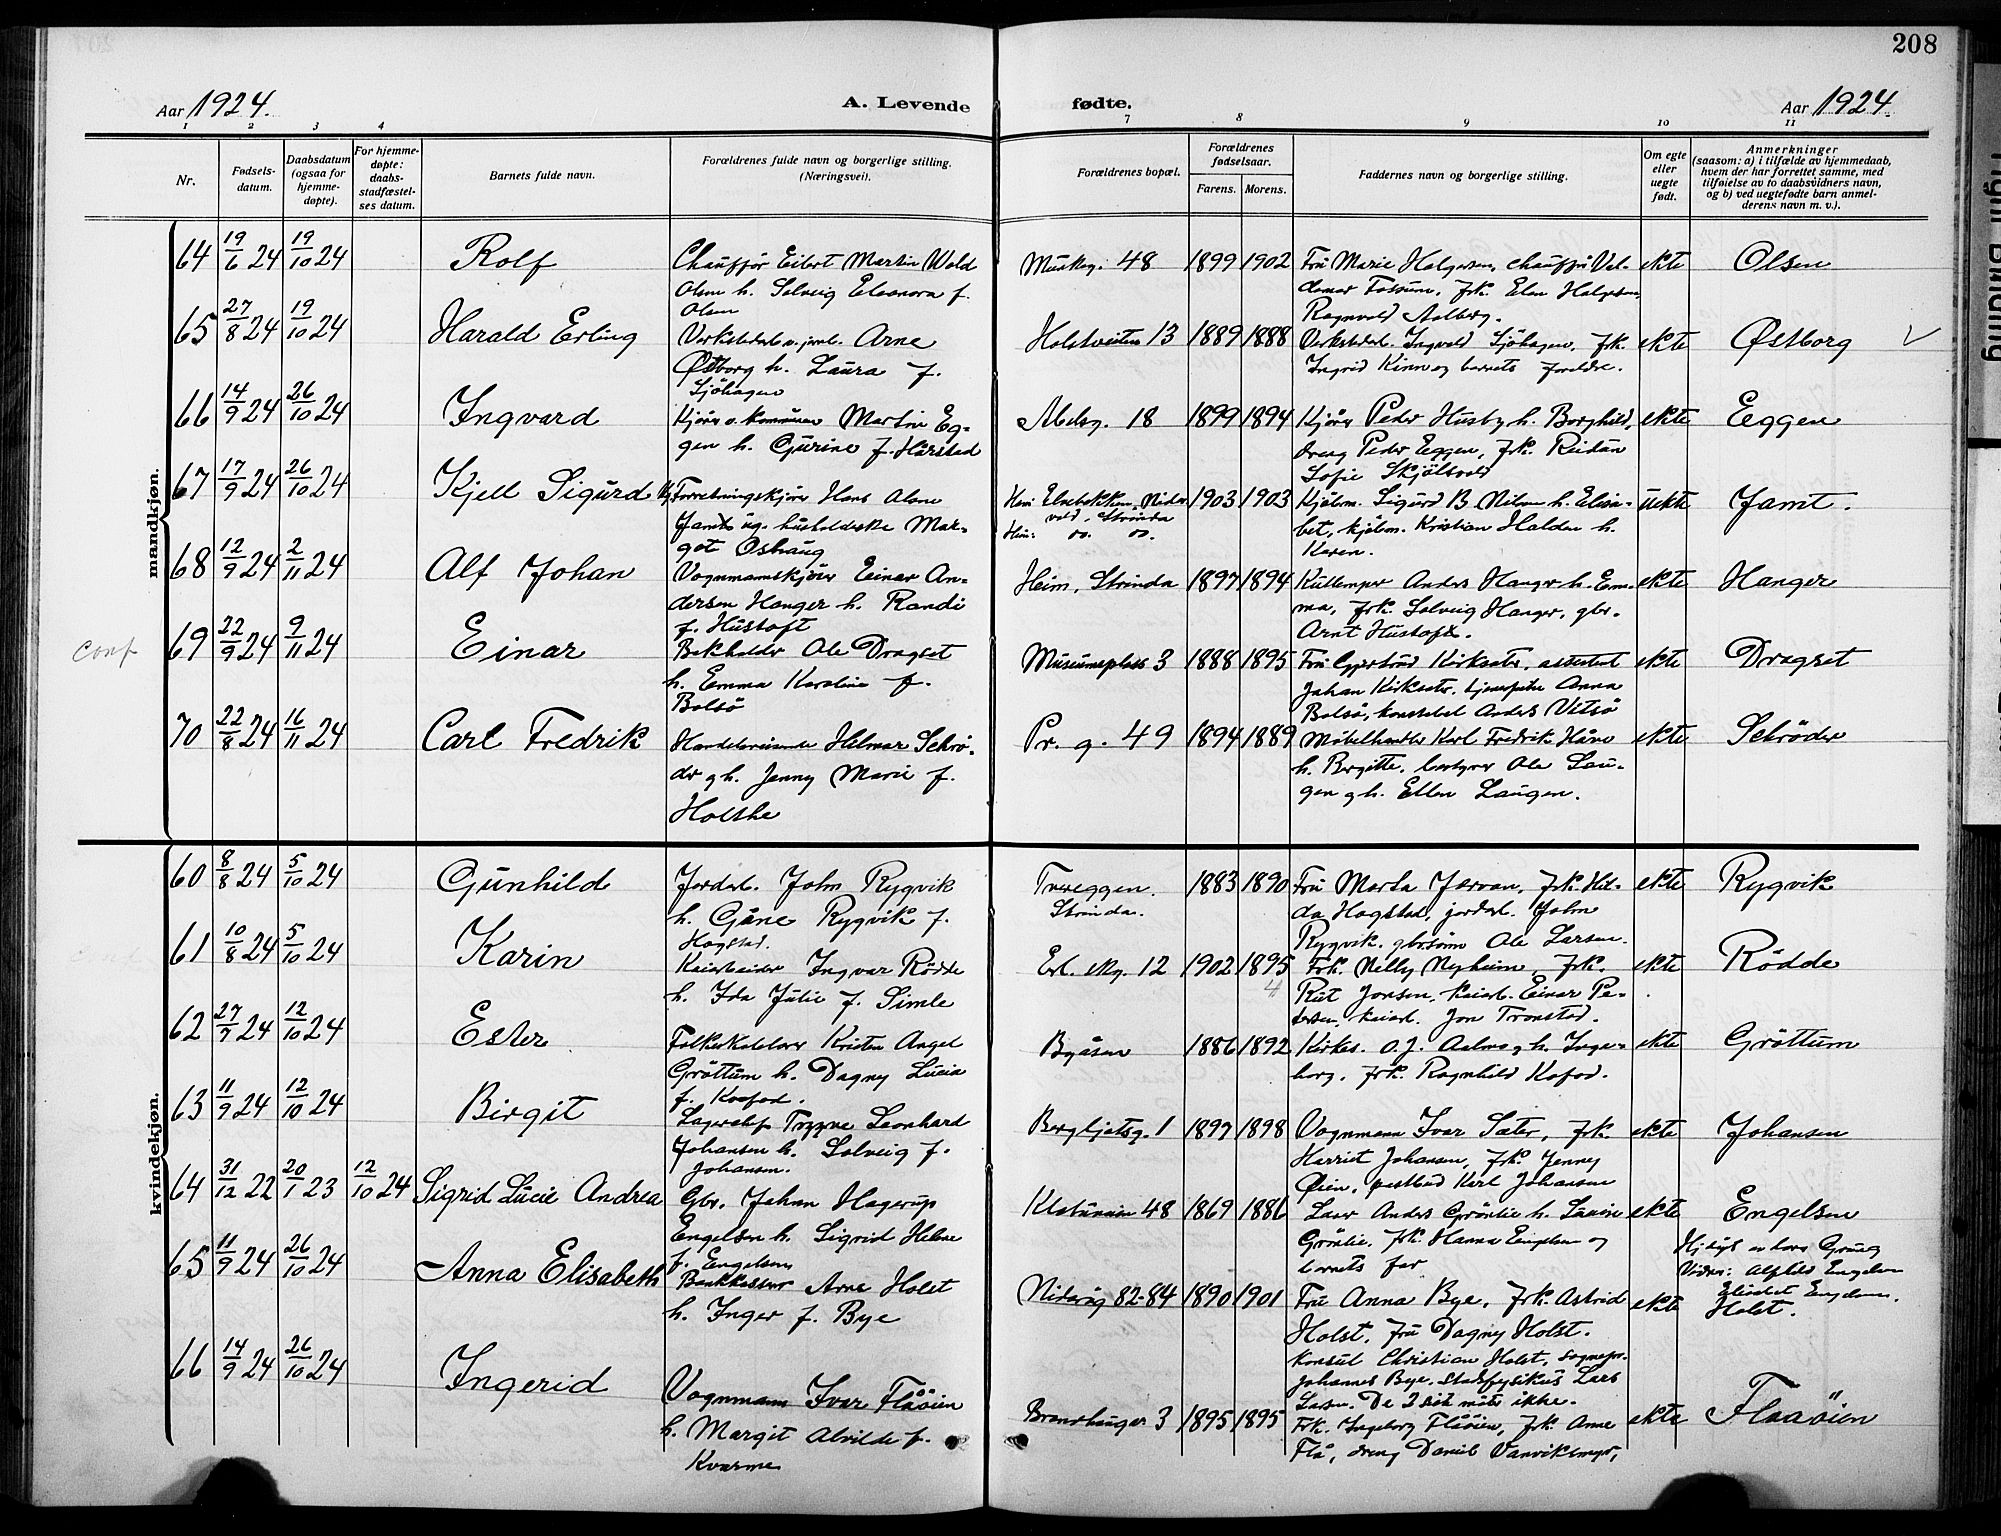 208
Aar 1924. A. Levende fødte. Aar 1924.
1 2 3 4 7 8 9 10 11
Nr.
Fødsels-
datum.
Daabsdatum
(ogsaa for
hjemme-
døpte).
For hjemme-
døpte:
daabs-
stadfæstel-
ses datum.
Barnets fulde navn.
Forældrenes fulde navn og borgerlige stilling.
(Næringsvei).
Forældrenes bopæl.
Forældrenes
fødselsaar.
Farens. Morens.
Faddernes navn og borgerlige stilling.
Om egte
eller
uegte
født.
Anmerkninger
(saasom: a) i tilfælde av hjemmedaab,
hvem der har forrettet samme, med
tilføielse av to daabsvidners navn,
og b) ved uegtefødte barn anmel-
derens navn m. v.).
mandkjøn.
64 19/6 24 19/10 24 Rolf
Chauffør Eilert Martin Wold
Olsen h. Solveig Eleonora f.
Olsen
48 1899 1902
Fru Marie Holgersen, chauffør Val-
demar Fossum, frk. Elen Holgersen,
Ragnvald Aalberg.
ekte Olsen
65 27/8 24 19/10 24 Harald Erling
Arne
Østborg h. Laura f.
Sjöhagen
13 1889 1888
Verkstedarb. Ingvald Sjöhagen, frk.
Ingrid Kinn og barnets foreldre.
ekte Østborg
66 14/9 24 26/10 24 Ingvard
Kjører v. kommunen Martin Eg-
gen h. Gurine f. Harstad
18 1899 1894
Kjører Peder Husby h. Borghild,
dreng Peder Eggen, frk. Reidun
Sofie
ekte Eggen
67 17/9 24 26/10 24 Kjell Sigurd
Forretningskjører Hans
Jamt ug. husholderske Mar-
got Oshaug
Strinda
1903 1903
Sigurd B. Nilsen h. Elisa-
bet, Kristian Halden h.
Karen.
uekte Jamt.
68 12/9 24 2/11 24 Alf Johan
Vognmannskjører Einar An-
dersen Hanger h. Randi
f. Hustoft
Heim, Strinda 1897 1894
Anders Hanger h. Em-
ma, frk. Solveig Hanger, gbr.
Arnt Hustoft.
ekte Hanger
conf
69 22/9 24 9/11 24 Einar
Bokholder Ole Dragset
h. Emma Karoline f.
Bolsö
Museumsplass 3 1888 1895
Fru Gjertrud Kirksæter, assistent
Johan Kirksæter, tjenestepike Anna
Bolsö, konstabel Anders Vitsö
ekte Dragset
70 22/8 24 16/11 24 Carl Fredrik
Handelsreisende Hilmar Schrö-
der g h. Jenny Marie f.
Holthe
Pr. g. 49 1894 1889
Möbelhandler Karl Fredrik
h. Bergitte, bestyrer Ole Lau-
gen g h. Ellen Laugen.
ekte Schröder
kvindekjøn.
60 8/8 24 5/10 24 Gunhild
Jordarb. John Rygvik
h. Gåne Rygvik f.
Hogstad.
Tvereggen.
Strinda.
1883 1890
Fru Marta Jervan, frk. Hil-
da Hogstad, jordarb. John
Rygvik, gbrsønn Ole Larsen.
ekte Rygvik
61 10/8 24 5/10 24 Karin
Kaiarbeider Ingvar Rödde
h. Ida Julie f. Simle
12 1902 1895
4
Frk. Nelly Nyheim, frk.
Rut Jonsen, kaiarb. Einar Pe-
dersen, kaiarb. Jon Tronstad.
ekte Rödde
62 27/7 24 12/10 24 Ester
Folkeskolelærer Kristen Angel
Gröttum h. Dagny Lucia
f. Kofod.
Byåsen 1886 1892
Kirkes. O. J. g h. Inge-
borg, frk. Ragnhild Kofod.
ekte Gröttum
63 11/9 24 12/10 24 Birgit
Lagersjef Trygve Leonhard
Johansen h. Solveig f.
Johansen.
Bergljotsg. 1 1897 1898
Vognmann Ivar Sæter, frk.
Harriet Johansen, frk. Jenny
Øien, postbud Karl Johansen
ekte Johansen
64 31/12 22 20/1 23 12/10 24 Sigrid Lucie Andrea
Gbr. Johan Hagerup
Engelsen h. Sigrid Helene
f. Engelsen
48 1869 1886
Anders Grönlie h.
Grönlie, frk. Hanna Engelsen og
barnets far
ekte Engelsen
Hj.døpt av Grung
Vidner: Alfhild Engelsen
Elisabet Engelsen.
65 11/9 24 26/10 24 Anna Elisabeth
Bankkasserer Arne Holst
h. Inger f. Bye
82-84 1890 1901
Fru Anna Bye, frk. Astrid
Holst, fru Dagny Holst.
Konsul Christian Holst, sognepr.
Johannes Bye, stadsfysikus Lars
De 2 sist møtte ikke.
ekte Holst.
66 14/9 24 26/10 24 Ingerid
Vognmann Ivar Flåöien
h. Margit Alvilde f.
Kvarme
3 1895 1895
Frk. Ingeborg Flåöien, frk. Anne
Flå, dreng Daniel Vanvikmyr,
ekte Flaaöien